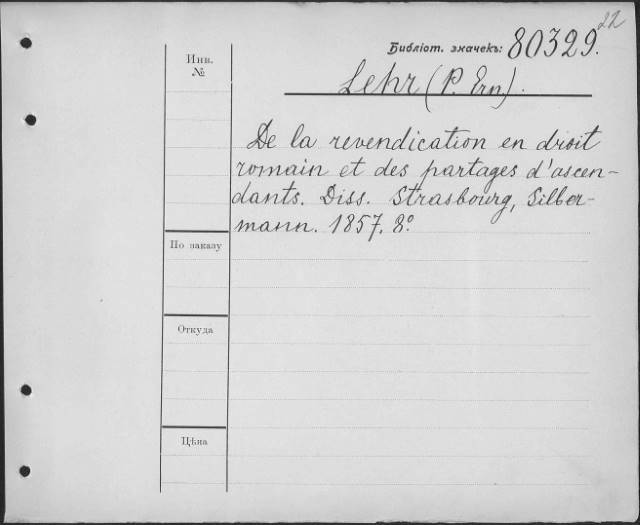 22
Библіот. значекъ: 80329.
Инв.
№
Lehr (P. Ern.).
De la revendication en droit
romain et des partages d'ascen-
dants. Diss. Strasbourg, Silber-
mann. 1857. 8º
По заказу
Откуда
Цѣна